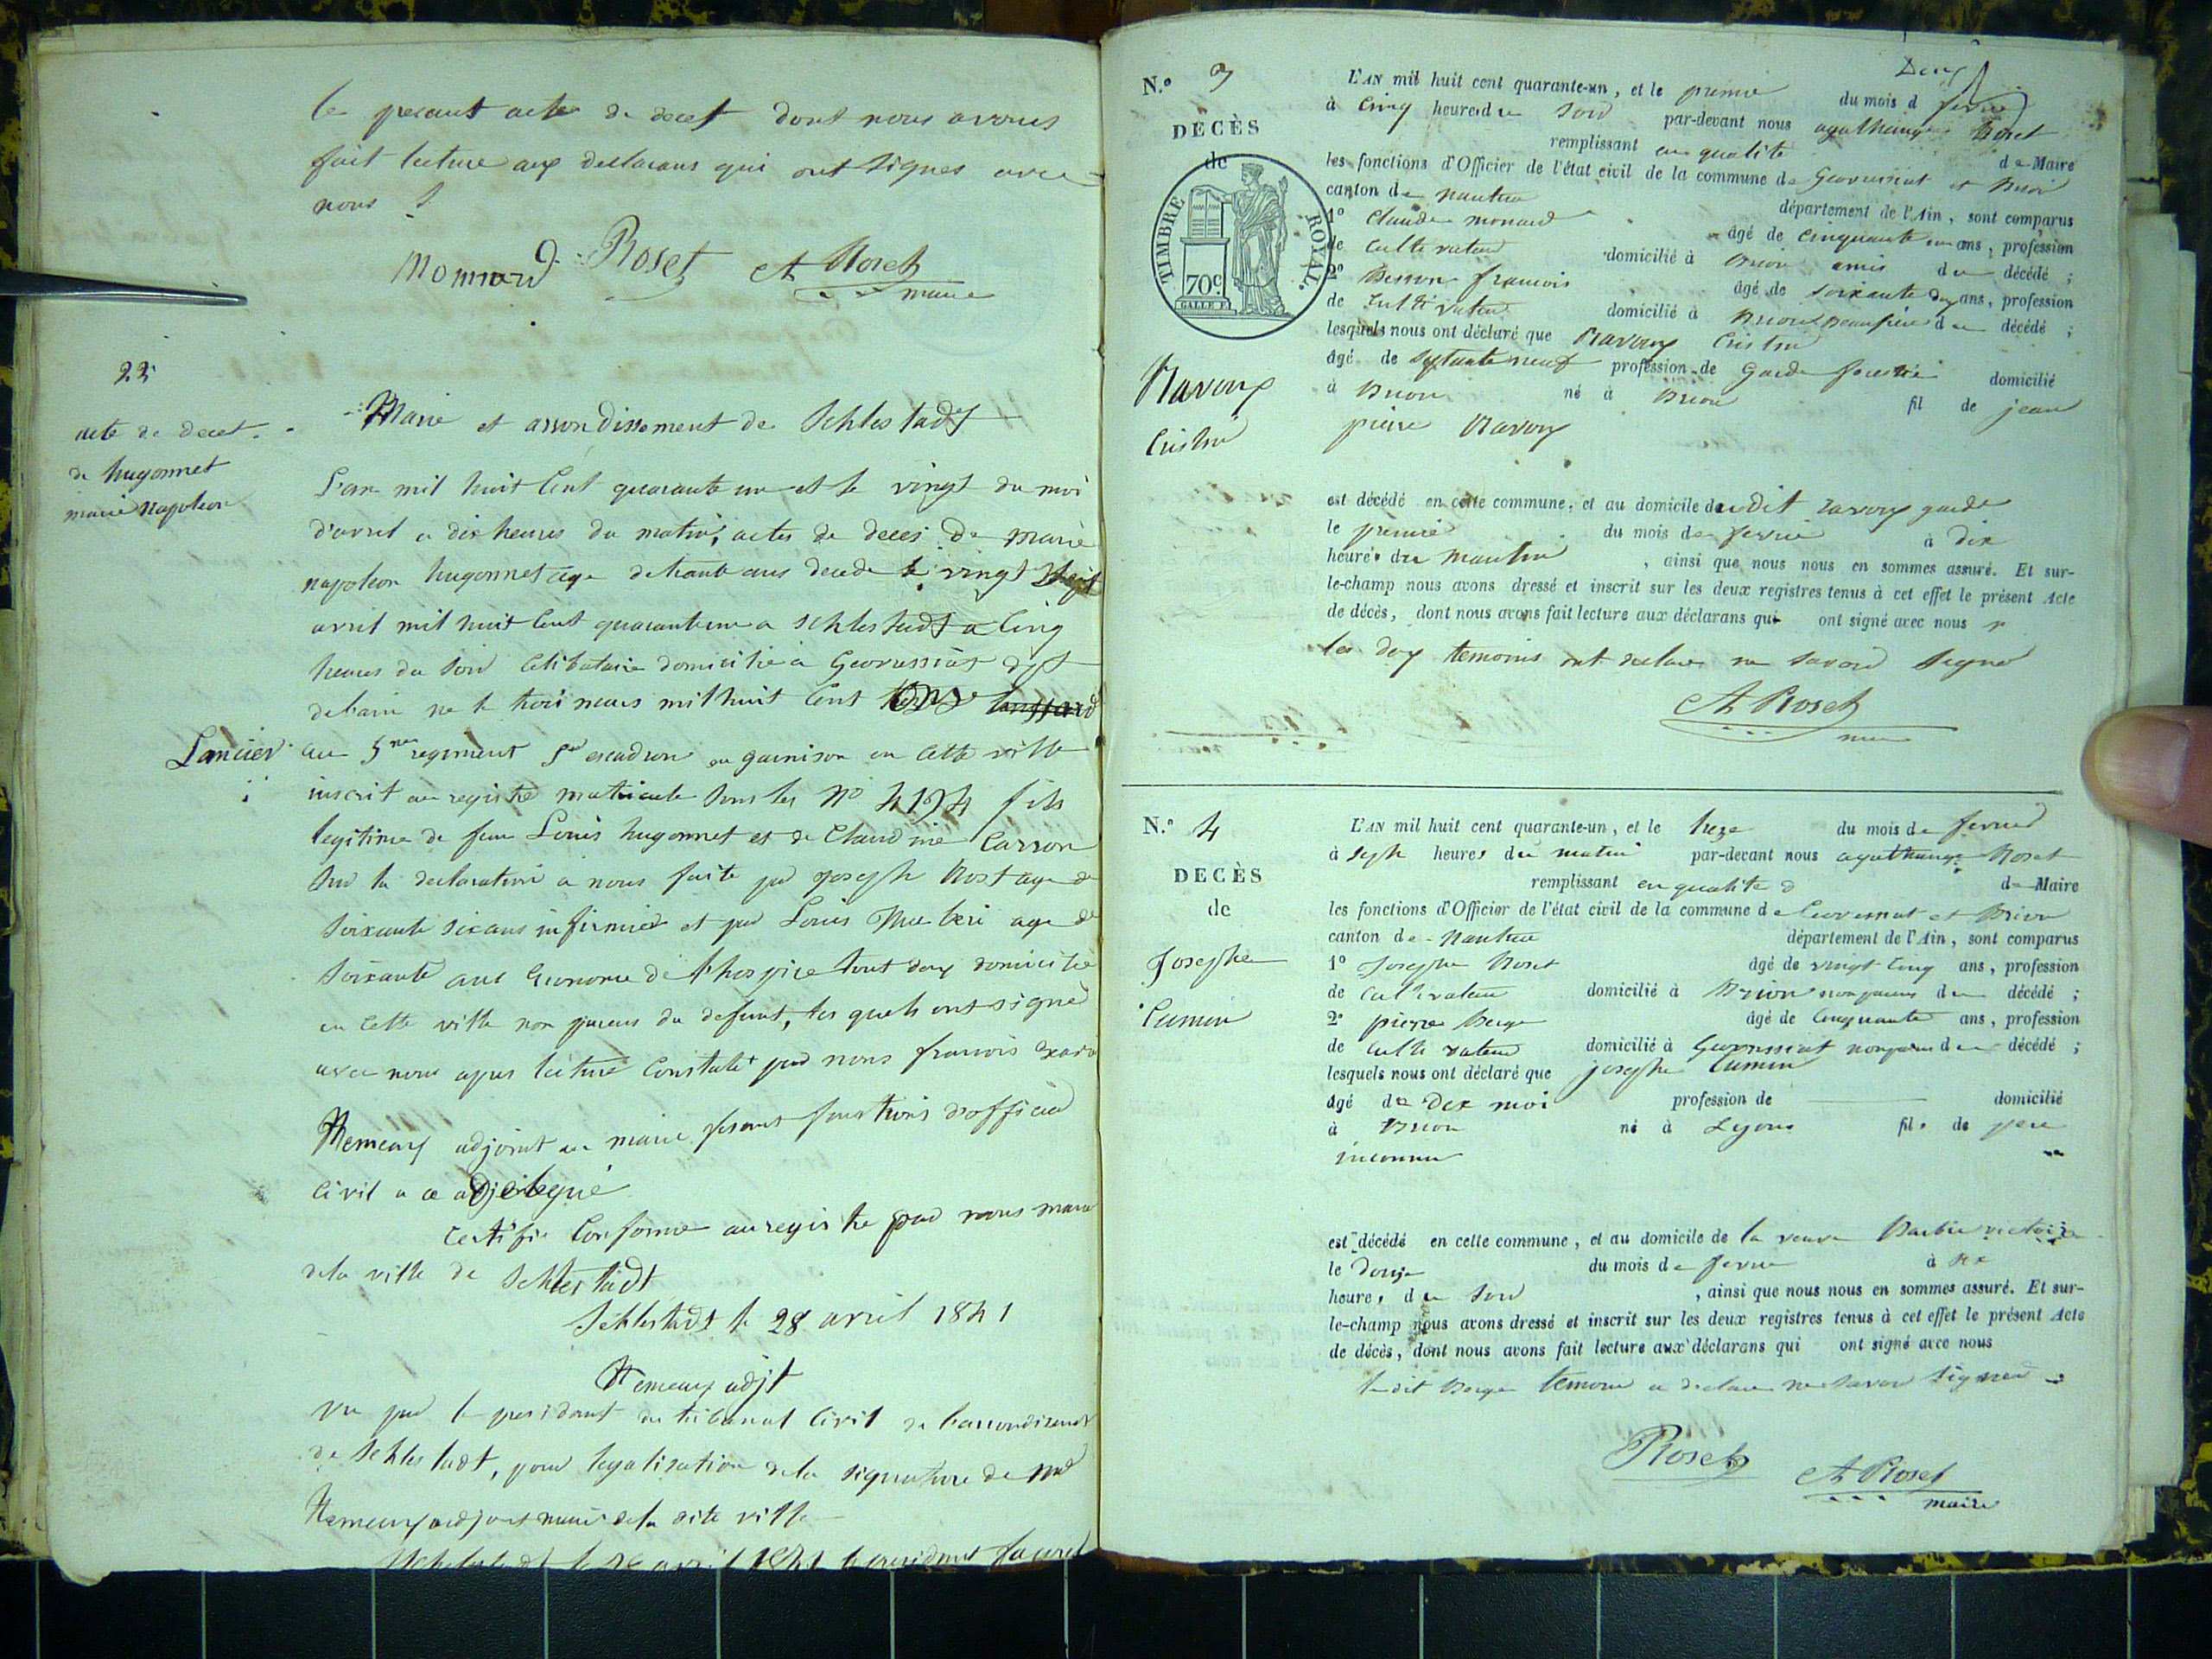 le present acte de decet dont nous avons
fait lecture aux declarans qui ont signes avec
nous
Monnard Roset At Roset
maire
22
acte de decet
de hugonnet
marie napoleon
Marie et arrondissement de Schlestadt
L'an mil huit Cent quarante un et le vingt du moi
d'avril a dix heures du matin, actes de deces de marie
napoleon hugonnet age de trante ans decede le vingt
avril mil huit Cent quarante un a Schlestadt a Cinq
heures du soir Celibataire domicilie a Geovressiat dpt
delain ne le troi mars mil huit Cent onze
Lancier au 5me regiment 5me escadron en garnison en Cette ville
inscrit au registre matricule sous les No 4194 fils
legitime de feu Louis hugonnet et de Claudine Carron
sur la declaration a nous faite par joseph Rost age de
soixante six ans infirmier et par Louis age de
soixante ans Econome de l'hospice tout deux domicilie
en Cette ville non parens du defunt, les quels ont signe
avec nous apres lecture Constate par nous francois
Hemeury adjoint au maire fesant fonctions d'officier
Civil a ce delegue
Certifie Conforme au registre par nous maire
de la ville de Schlestadt
Schlestadt le 28 avril 1841
Hemeury adjt
vu par le president du tribunal Civil de l'arrondissement
de Schlestadt, pour legalisation de la signature de mr
Hemeury adjoint maire de la dite ville
Schlestadt le avril 1841 le president
Deux
N.º 3
DÉCÈS
de
TIMBRE ROYAL.
70c
Ravoux
Cristin
L'AN mil huit cent quarante-un, et le premie du mois d fevrie
à Cinq heures du soir par-devant nous agathange Roset
remplissant en qualite de Maire
les fonctions d'Officier de l'état civil de la commune de Geovressiat et Brion
canton de nantua département de l'Ain, sont comparus
1º Claude monard âgé de cinquante un ans, profession
de Cultivateur domicilié à Brion amis du décédé ;
2º Besson francois âgé de soixante deux ans, profession
de Cultivateur domicilié à Brion beaufrere du décédé ;
lesquels nous ont déclaré que Ravoux Cristin
âgé de septante neuf profession de Garde forestie domicilié
à Brion né à Brion fil de jean
pierre Ravoux
est décédé en cette commune, et au domicile dudit ravoux garde
le premie du mois de fevrie à dix
heures du mautin , ainsi que nous nous en sommes assuré. Et sur-
le-champ nous avons dressé et inscrit sur les deux registres tenus à cet effet le présent Acte
de décès, dont nous avons fait lecture aux déclarans qui ont signé avec nous
les deux temoins ont declare ne savoir signe
At Roset
N.º 4
DECÈS
de
Josephe
Cumin
L'AN mil huit cent quarante-un, et le treze du mois de fevrie
à sept heures du matin par-devant nous agathange Roset
remplissant en qualite d de Maire
les fonctions d'Officier de l'état civil de la commune de Geovressiat et Brion
canton de Nantua département de l'Ain, sont comparus
1º Josephe Roset âgé de vingt Cinq ans, profession
de Cultivateur domicilié à Brion non parens du décédé ;
2º pierre Berge âgé de Cinquante ans, profession
de Cultivateur domicilié à Geovressiat non parens du décédé ;
lesquels nous ont déclaré que josephe Cumin
âgé de Dix moi profession de domicilié
à Brion né à Lyons fils de pere
inconnu
est décédé en cette commune, et au domicile de la veuve Barbie victoire
le Douze du mois de fevrie à
heures du soir , ainsi que nous nous en sommes assuré. Et sur-
le-champ nous avons dressé et inscrit sur les deux registres tenus à cet effet le présent Acte
de décès, dont nous avons fait lecture aux déclarans qui ont signé avec nous
le dit Berge temoin a declare ne savoir signer
Roset At Roset
maire